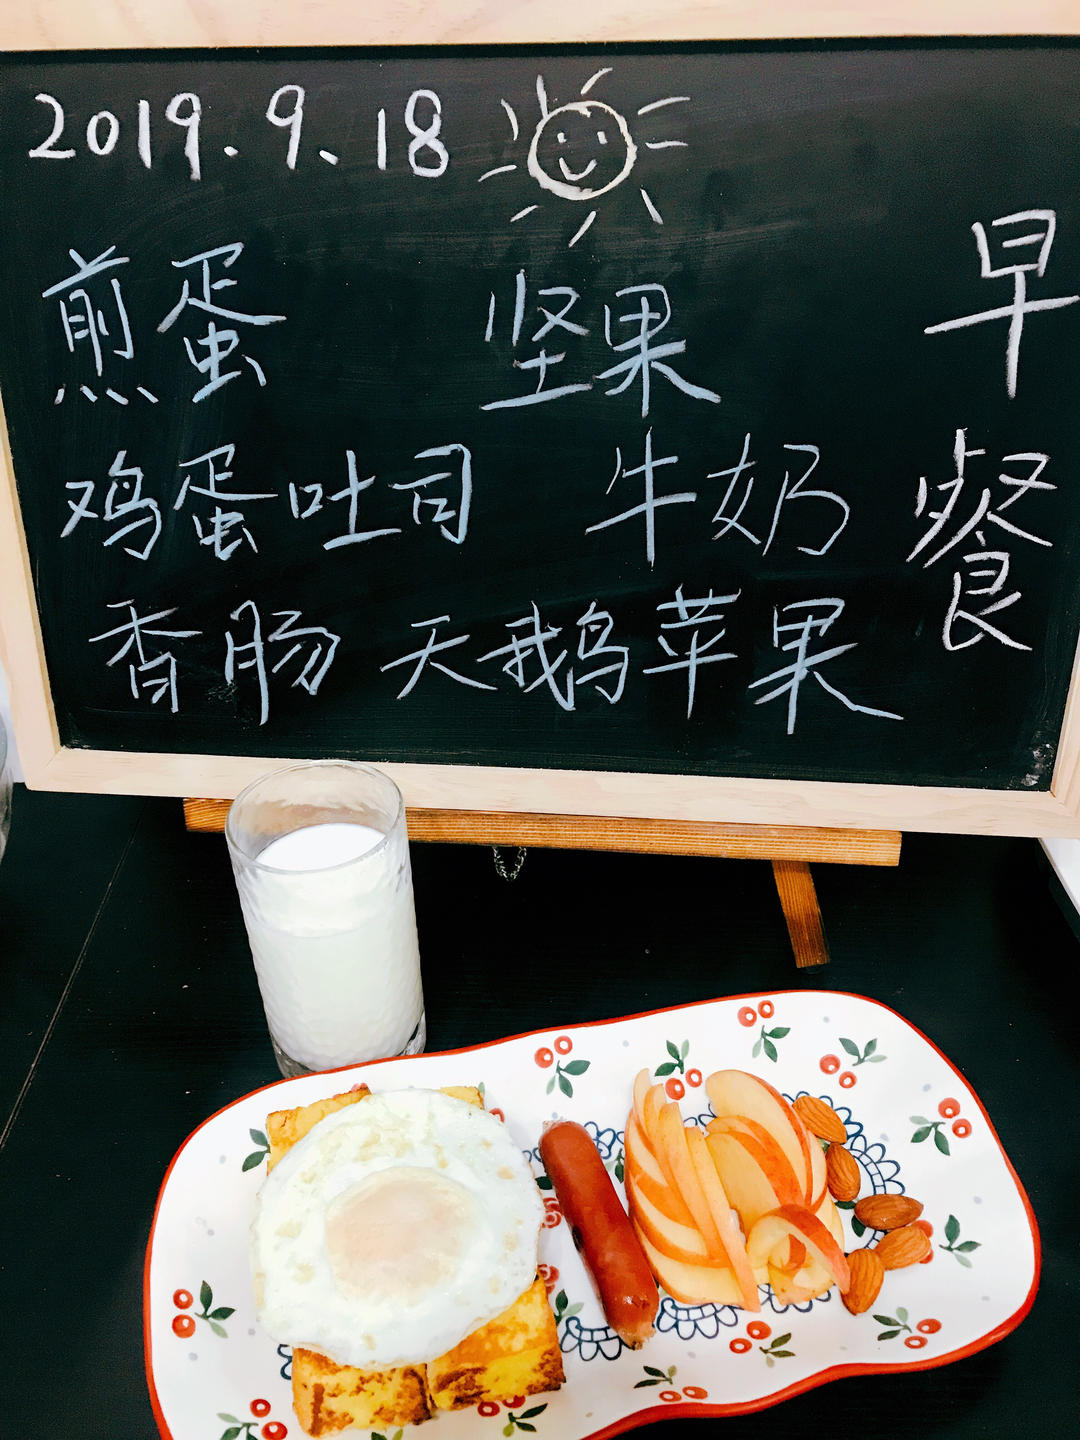 2019.9.18
早餐
煎蛋 坚果
鸡蛋吐司 牛奶
香肠 天鹅苹果